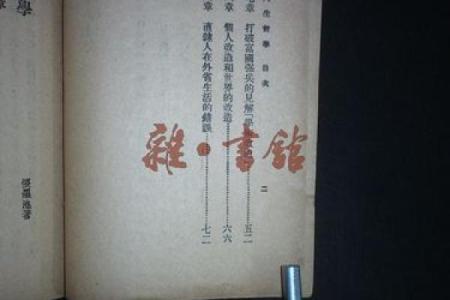 人生哲學 目次 二
章 打破富國強兵的見解「學 五二
章 個人改造和世界的改造 六六
章 直隸人在外省生活的錯誤 七二
學
著
雜書館